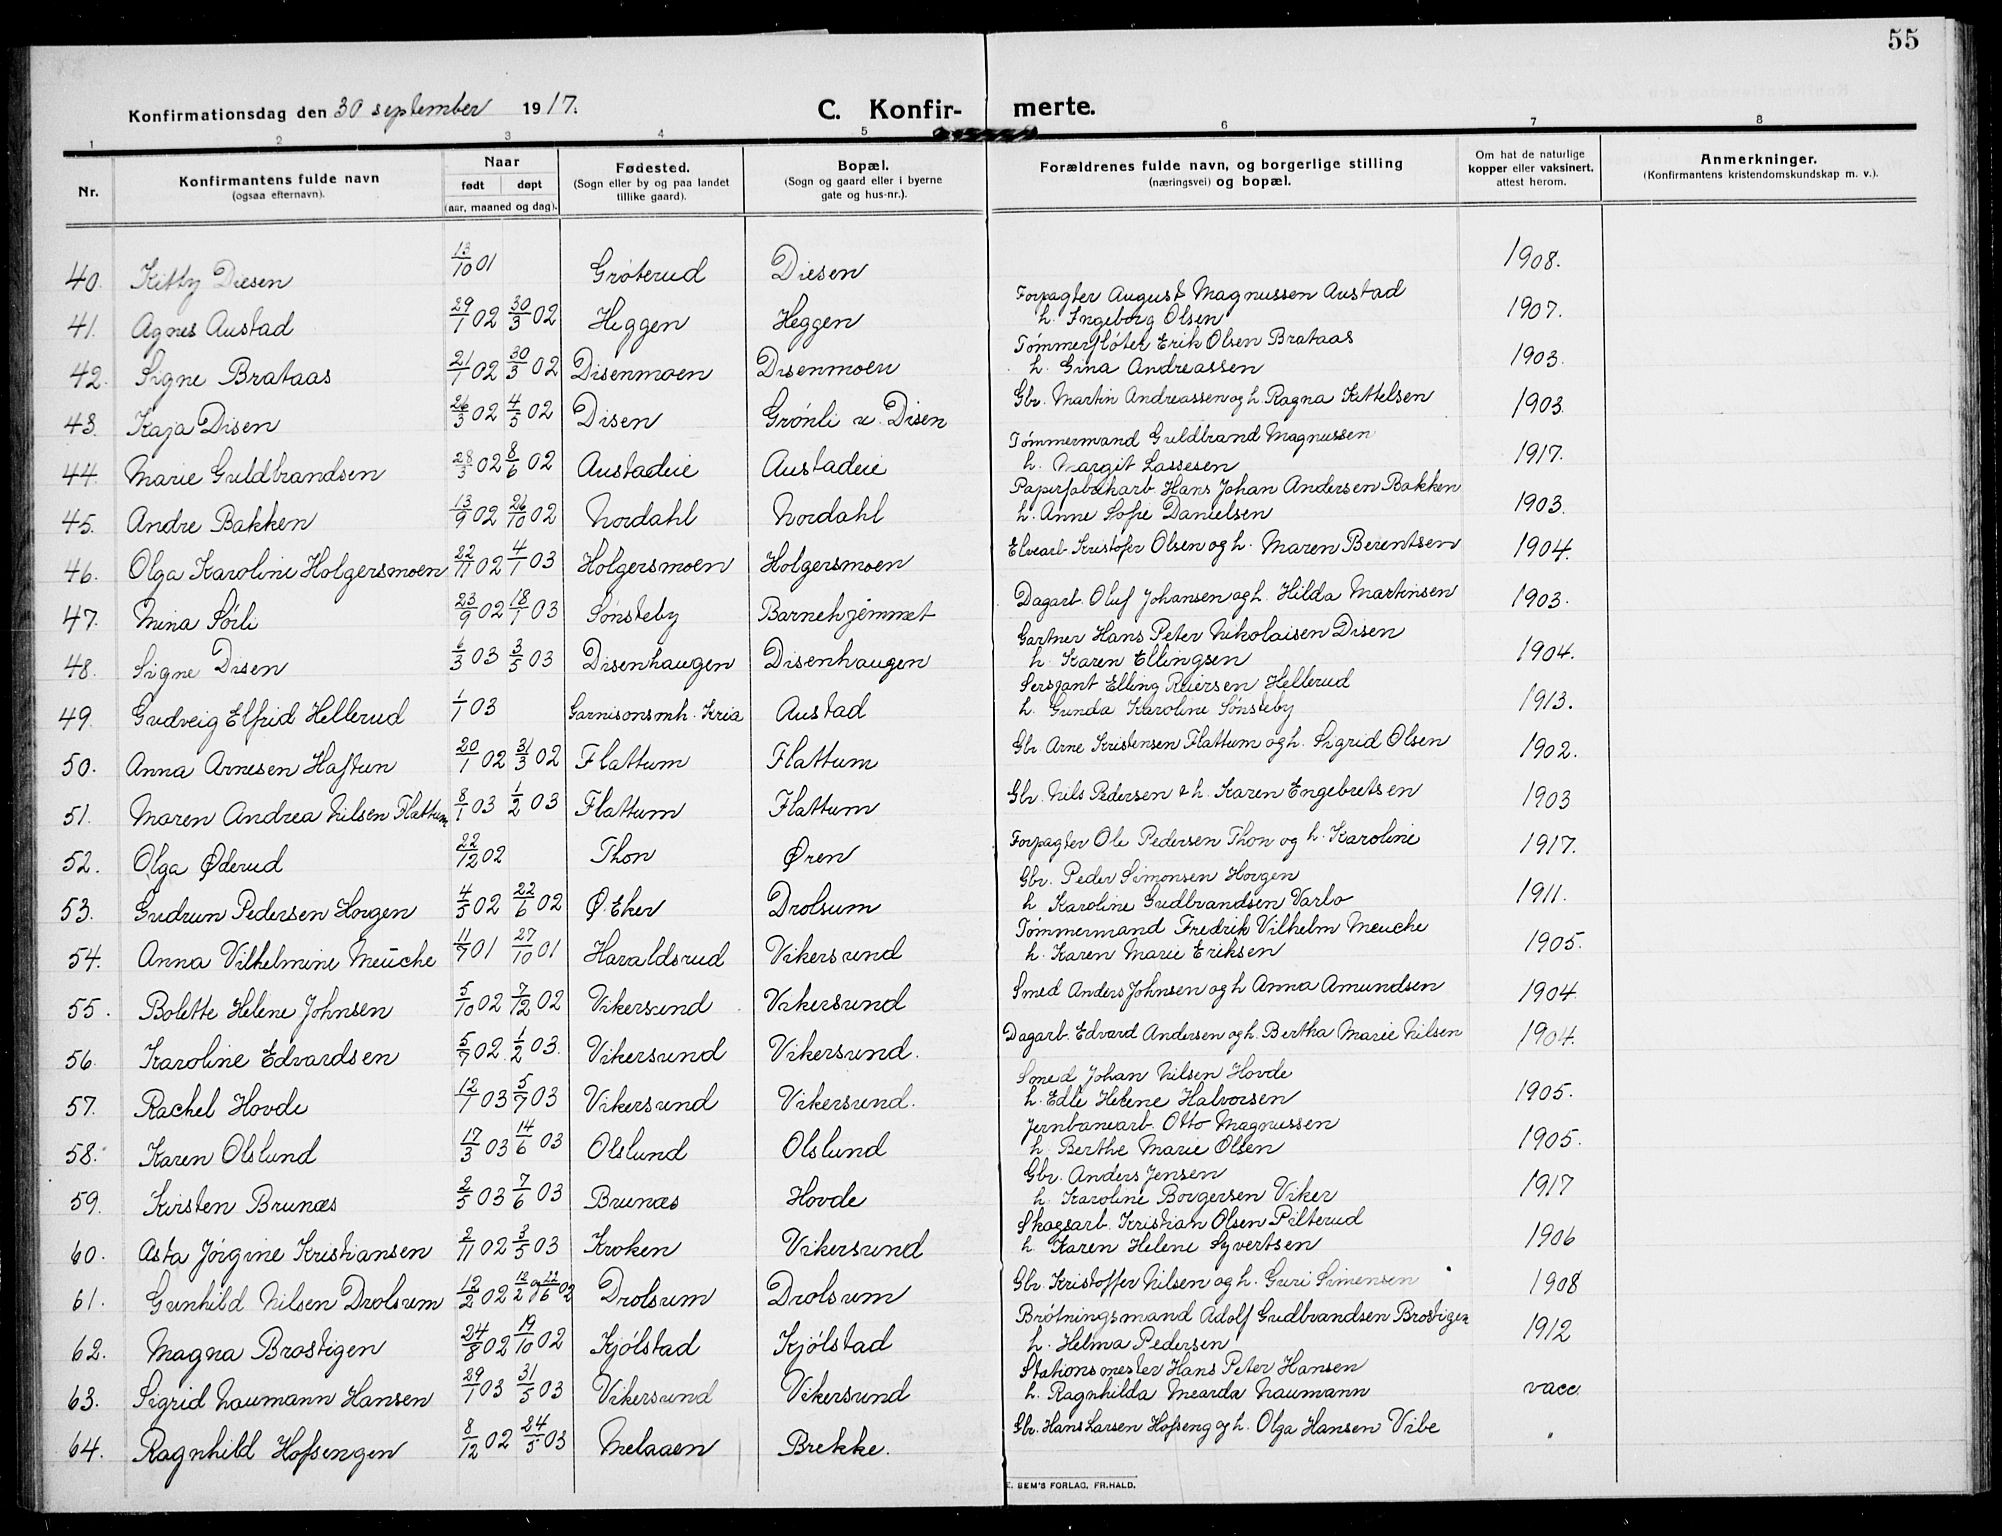 55
Konfirmationsdag den 30 september 1917.
C. Konfir- merte.
1 2 3 4 5 6 7 8
Nr.
Konfirmantens fulde navn
(ogsaa efternavn).
Naar
født døpt
(aar, maaned og dag).
Fødested.
(Sogn eller by og paa landet
tillike gaard).
Bopæl.
(Sogn og gaard eller i byerne
gate og hus-nr.).
Forældrenes fulde navn, og borgerlige stilling
(næringsvei) og bopæl.
Om hat de naturlige
kopper eller vaksinert,
attest herom.
Anmerkninger.
(Konfirmantens kristendomskundskap m. v.).
40. Kitty Diesen 13/10 01 Grøterud Diesen 1908.
Forpagter August Magnussen Austad
41. Agnes Austad 29/1 02 30/3 02 Heggen Heggen h. Ingeborg Olsen 1907.
Tømmerfløter Erik Olsen Brataas
42. Signe Brataas 21/1 02 30/3 02 Disenmoen Disenmoen h. Gina Andreassen 1903.
43. Kaja Disen 26/3 02 4/5 02 Disen Grønli u. Disen Gbr. Martin Andreassen og h. Ragna Kittelsen 1903.
Tømmermand Guldbrand Magnussen
44. Marie Guldbrandsen 28/3 02 8/6 02 Austadeie Austadeie h. Margit Lassesen 1917.
Papirfabrikarb. Hans Johan Andersen Bakken
45. Andre Bakken 13/9 02 26/10 02 Nordahl Nordahl h. Anne Sofie Danielsen 1903.
46. Olga Karoline Holgersmoen 22/11 02 4/1 03 Holgersmoen Holgersmoen Elvearb. Kristofer Olsen og h. Maren Berentsen 1904.
47. Mina Sørli 23/9 02 18/1 03 Sønsteby Barnehjemmet Dagarb. Oluf Johansen og h. Hilda Martinsen 1903.
Gartner Hans Peter Nikolaisen Disen
48. Signe Disen 6/3 03 3/5 03 Disenhaugen Disenhaugen h. Karen Ellingsen 1904.
Sersjant Elling Reiersen Hellerud
49. Gudveig Elfrid Hellerud 1/1 03 Garnisonsmh. Kria Austad h. Gunda Karoline Sønsteby 1913.
50. Anna Arnesen Haftun 20/1 02 31/3 02 Flattum Flattum Gbr. Arne Kristensen Flattum og h. Sigrid Olsen 1902.
51. Maren Andrea Nilsen Flattum 8/1 03 1/2 03 Flattum Flattum Gbr. Nils Pedersen & h. Karen Engebretsen 1903
52. Olga Øderud 22/12 02 Thon Øren Forpagter Ole Pedersen Thon og h. Karoline 1917.
Gbr. Peder Simonsen Horgen
53. Gudrun Pedersen Horgen 4/5 02 22/6 02 Ø. Eker Drolsum h. Karoline Gudbrandsen Varlo 1911.
Tømmermand Fredrik Vilhelm Meuche
54. Anna Vilhelmine Meuche 11/7 01 27/10 01 Haraldsrud Vikersund h. Karen Marie Eriksen 1905.
55. Bolette Helene Johnsen 5/10 02 7/12 02 Vikersund Vikersund Smed Anders Johnsen og h Anna Amundsen 1904.
56. Karoline Edvardsen 5/7 02. 1/2 03. Vikersund Vikersund. Dagarb. Edvard Andersen og h. Bertha Marie Nilsen 1904.
Smed Johan Nilsen Hovde
57. Rachel Hovde 12/1 03 5/7 03 Vikersund Vikersund. h. Edle Helene Halvorsen 1905.
Jernbanearb. Otto Magnussen
58. Karen Olslund 17/3 03 14/6 03 Olslund Olslund h. Berthe Marie Olsen 1905.
Gbr. Anders Jensen
59. Kirsten Brunæs 2/5 03 7/6 03 Brunæs Hovde h. Karoline Borgersen Viker 1917
Skogsarb. Kristian Olsen Pilterud
60. Asta Jørgine Kristiansen 2/11 02 3/5 03 Kroken Vikersund h. Karen Helene Syvertsen 1906
61. Gunhild Nilsen Drolsum 12/2 02 12/2 og 22/6 02 Drolsum Drolsum Gbr. Kristoffer Nilsen og h. Guri Simensen 1908
Brøtningsmand Adolf Gudbrandsen Brostigen
62. Magna Brostigen 24/8 02 19/10 02 Kjølstad Kjølstad h. Helma Pedersen 1912
Stationsmester Hans Peter Hansen
63. Sigrid Naumann Hansen 29/1 03 31/5 03 Vikersund Vikersund h. Ragnhilda Mearda Naumann vacc.
64. Ragnhild Hofsengen 8/12 02 24/5 03 Melaaen Brekke. Gbr. Hans Larsen Hofseng og h. Olga Hansen Vibe "
E. SEM'S FORLAG, FR.HALD.